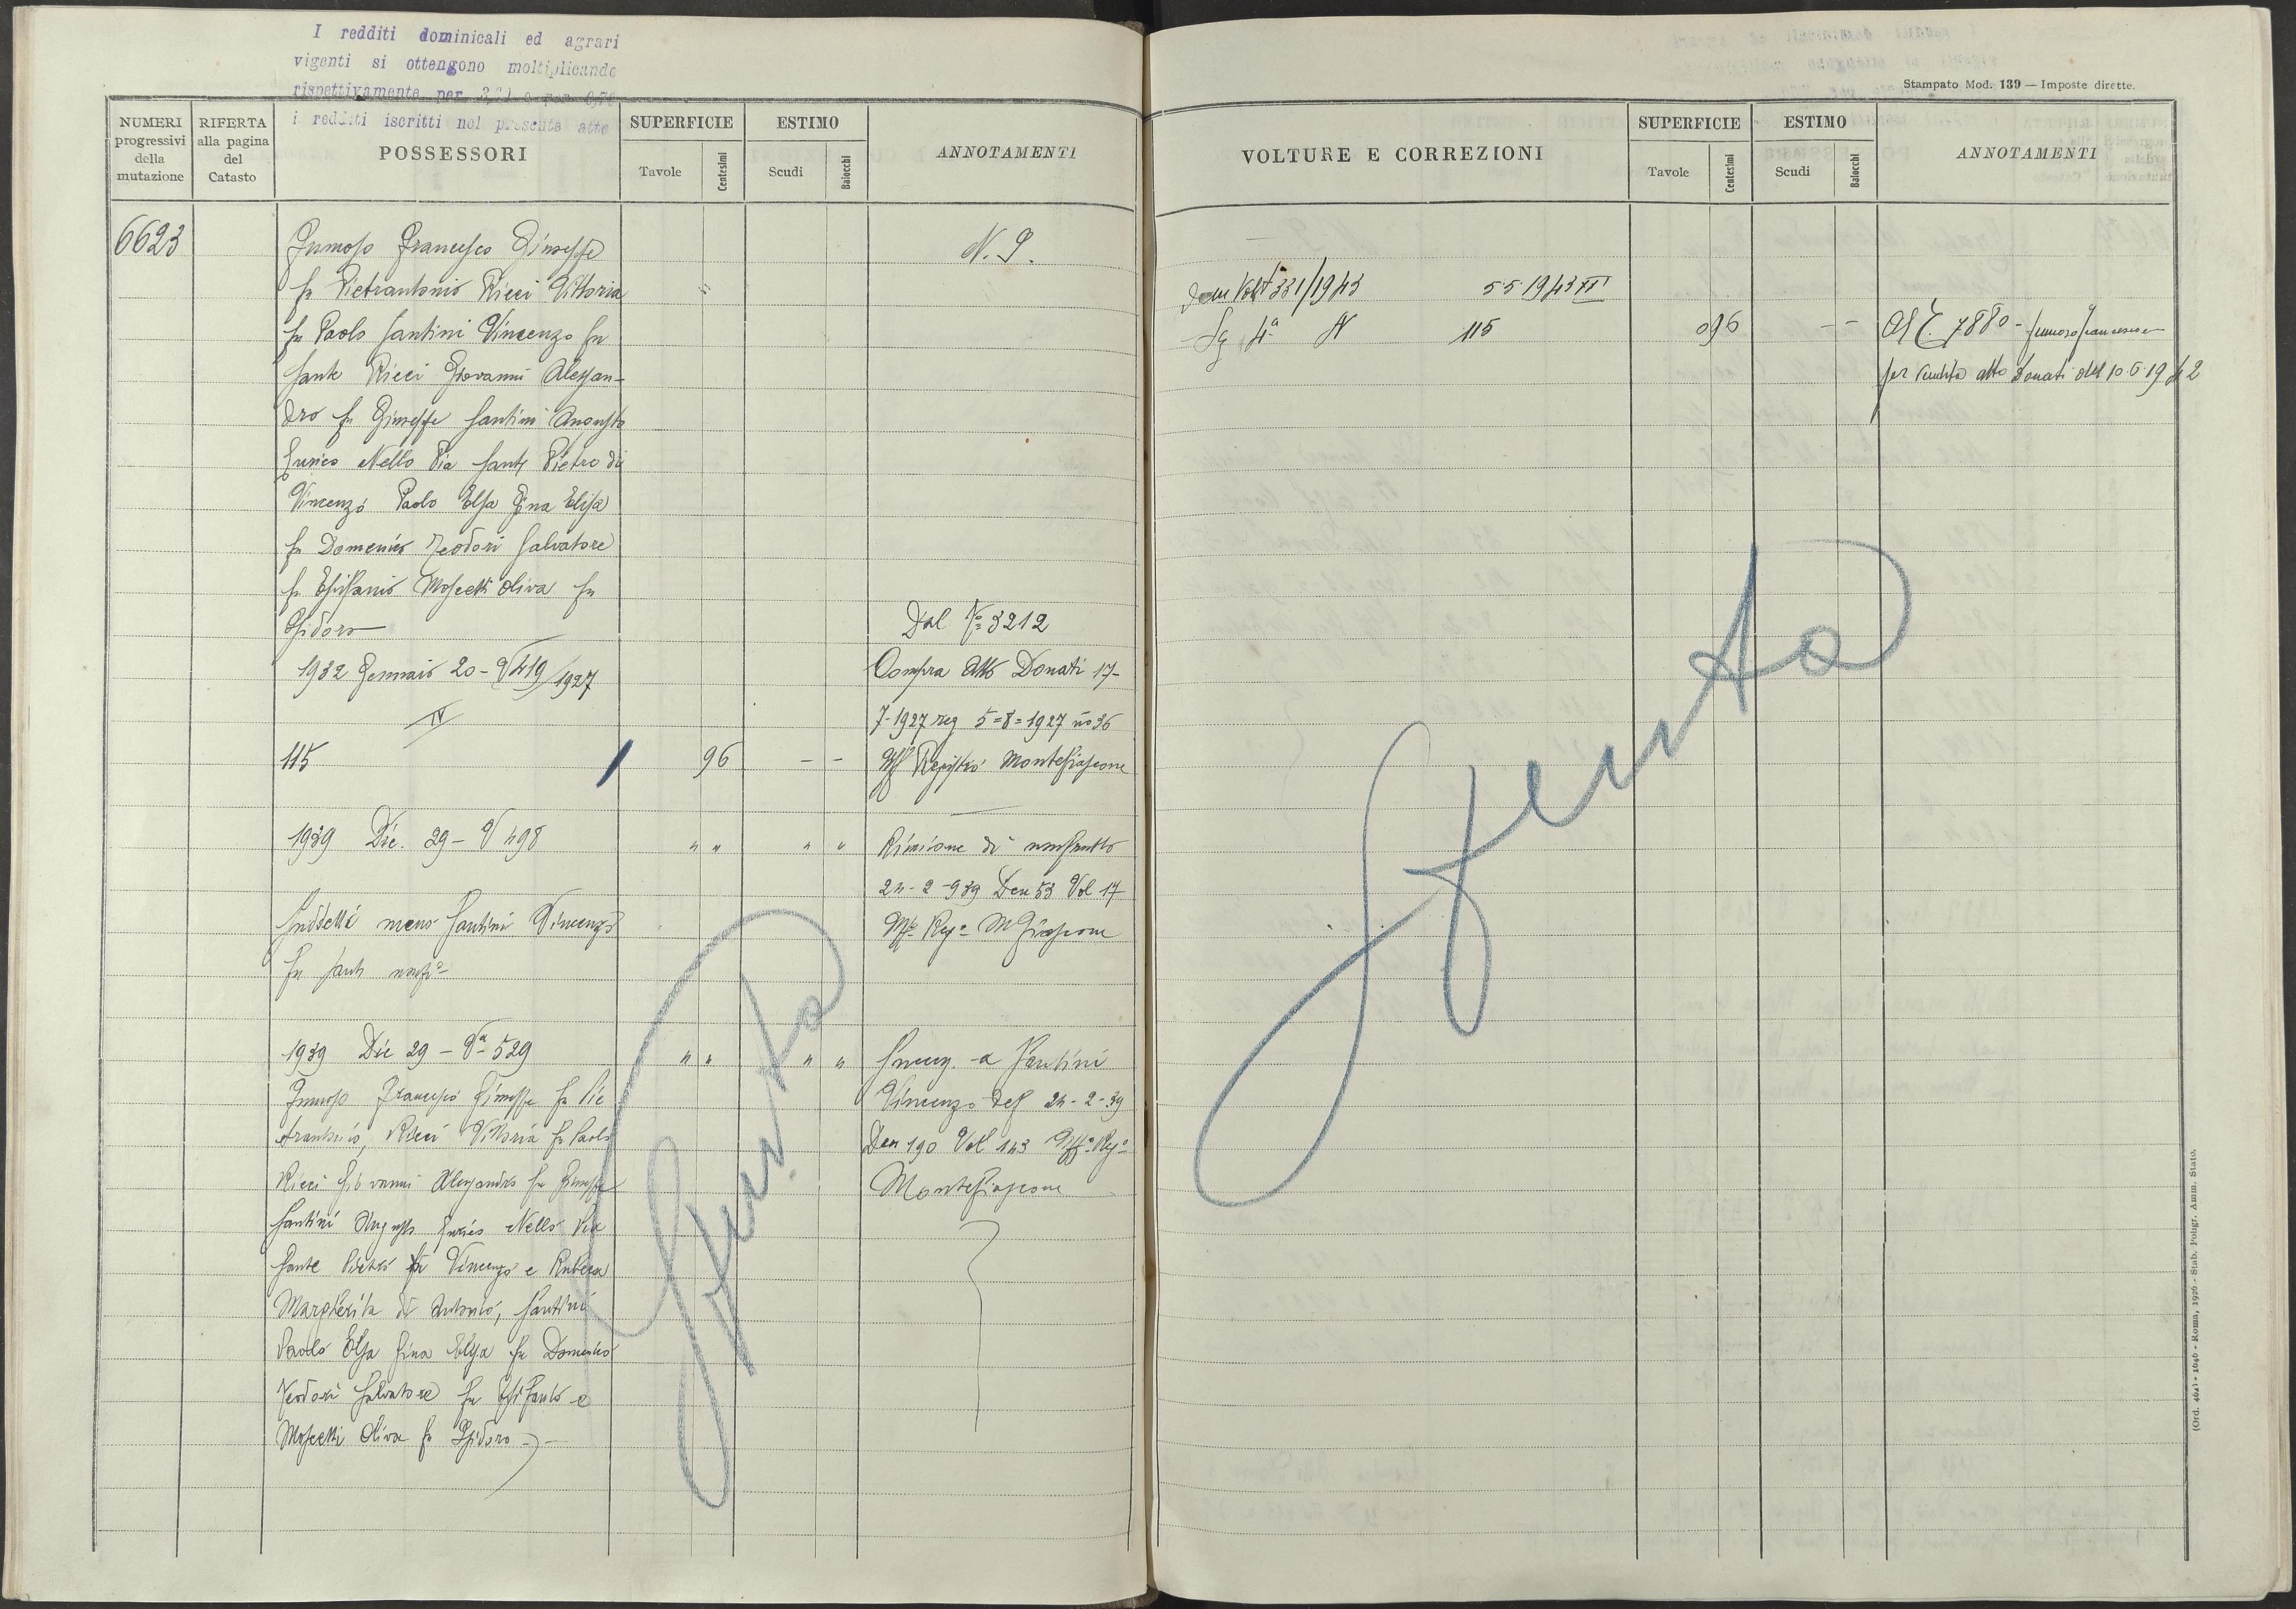 I redditi dominicali ed agrari
vigenti si ottengono moltiplicando
rispettivamente per
i redditi iscritti nel presente atto
NUMERI progressivi della mutazione
RIFERTA alla pagina del Catasto
POSSESSORI
SUPERFICIE
Tavole
Centesimi
ESTIMO
Scudi
Baiocchi
ANNOTAMENTI
6623
Fumoso Francesco Giuseppe
fu Pietrantonio Ricci Vittoria
fu Paolo Santini Vincenzo fu
Sante Ricci Giovanni Alessan-
dro fu Giuseppe Santini Augusto
Enrico Nello Pia Sante Pietro di
Vincenzo Paolo Elsa Gina Elisa
fu Domenico Teodori Salvatore
fu Epifanio Moscetti Oliva fu
Isidoro
N. P.
Dal No 3212
1932 Gennaio 20 - V 419/1927
IV
Compra Atto Donati 17-
7-1927 reg 5=8=1927 no 36
115 96 - - Uff Registro Montefiascone
1939 Dic. 29 - V 498 " " " "
Riunione di usufrutto
24-2-939 Den 53 Vol 17
Suddetti meno Santini Vincenzo
Uffo Rego MFiascone
fu Sante usufo
1939 Dic 29 - Va 529 " " " "
Success. a Santini
Fumoso Francesco Giuseppe fu Pie
Vincenzo del 24-2-39
trantonio, Ricci Vittoria fu Paolo
Den 190 Vol 143 Uffo Rego
Ricci Giovanni Alessandro fu Giuseppe
Montefiascone
Santini Augusto Enrico Nello Pia
Sante Pietro fu Vincenzo e
Margherita di Antonio, Santini
Paolo Elsa Gina Elisa fu Domenico
Teodori Salvatore fu Epifanio e
Moscetti Oliva fu Isidoro
Spento
Stampato Mod. 139 — Imposte dirette.
VOLTURE E CORREZIONI
SUPERFICIE
Tavole
Centesimi
ESTIMO
Scudi
Baiocchi
ANNOTAMENTI
Volt 331/1943 5 5 1943 XXI
Sez 4a N 115 096 - - Al C. 7880 - Fumoso Francesco
per vendita atto Donati del 10 6 1942
Spento
(Ord. 4641 - 4646 - Roma, 1926 - Stab. Poligr. Amm. Stato.